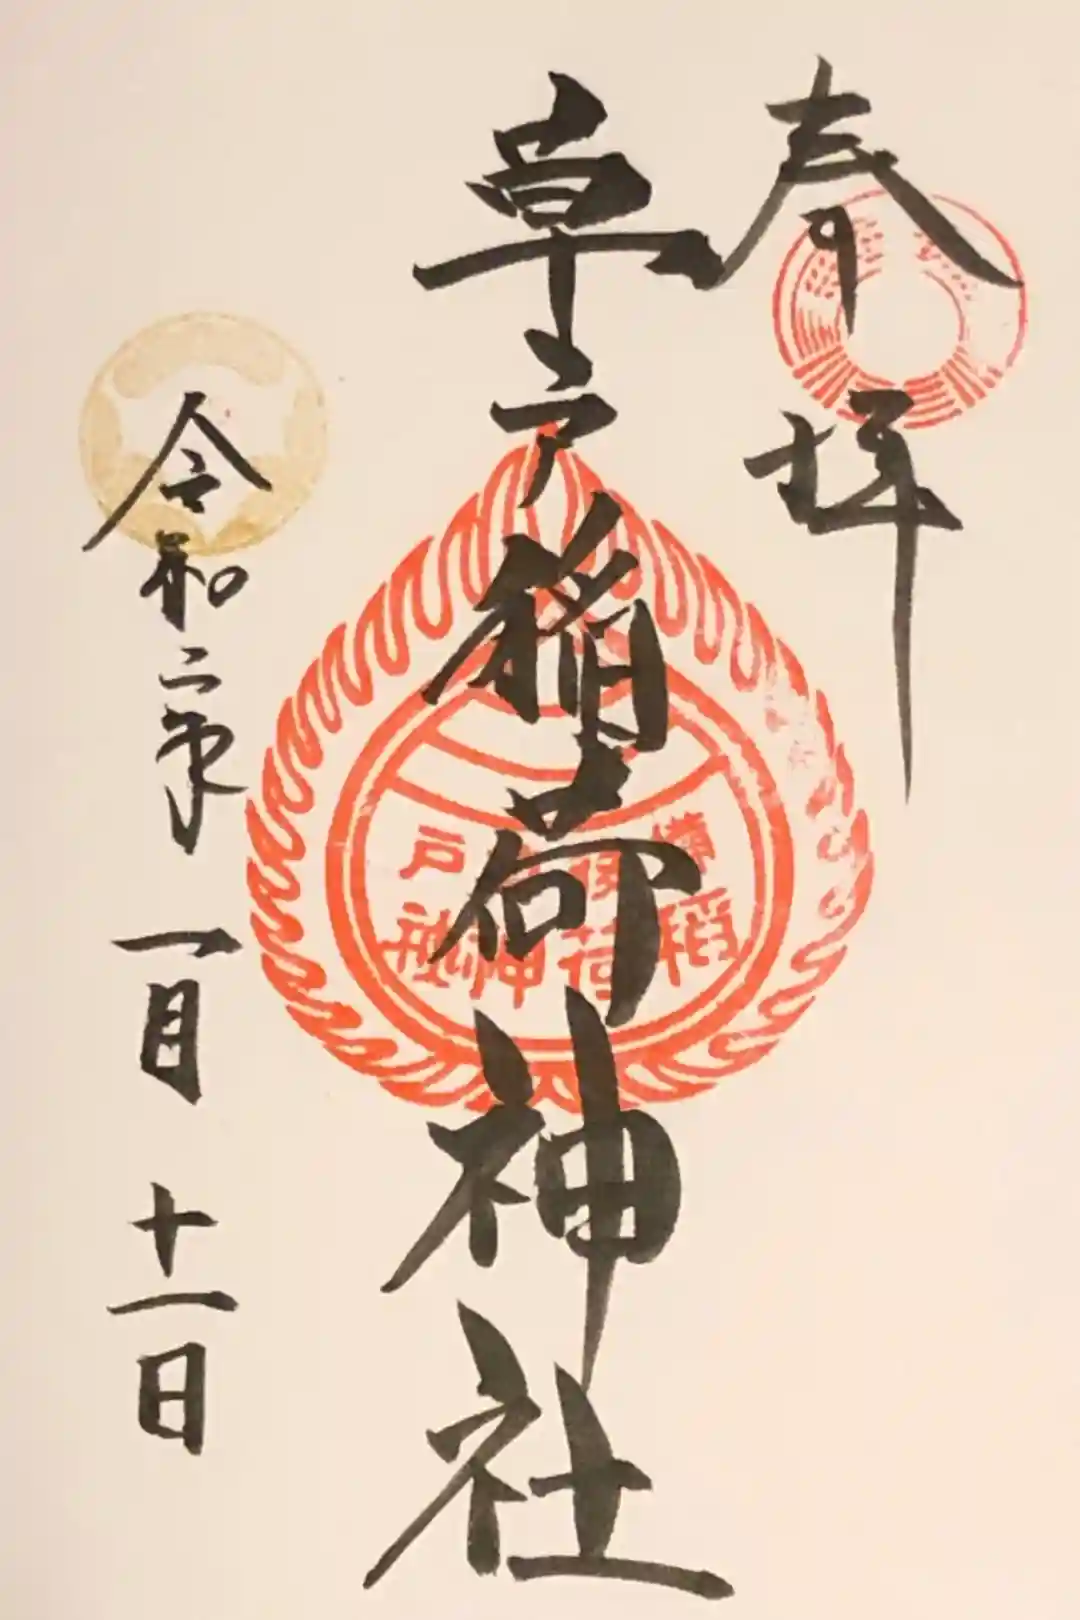 奉拝
草戸稲荷神社
備後草戸
稲荷神社
令和二年一月十一日